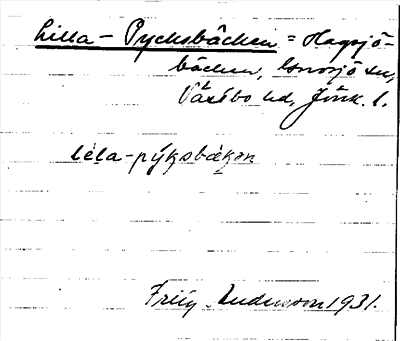 Lilla-Pycksbäcken = Hagsjö-
bäcken, Gnosjö sn,
Västbo hd, Jönk. l.
lela-pyksbækən
Frig Andersson 1931.